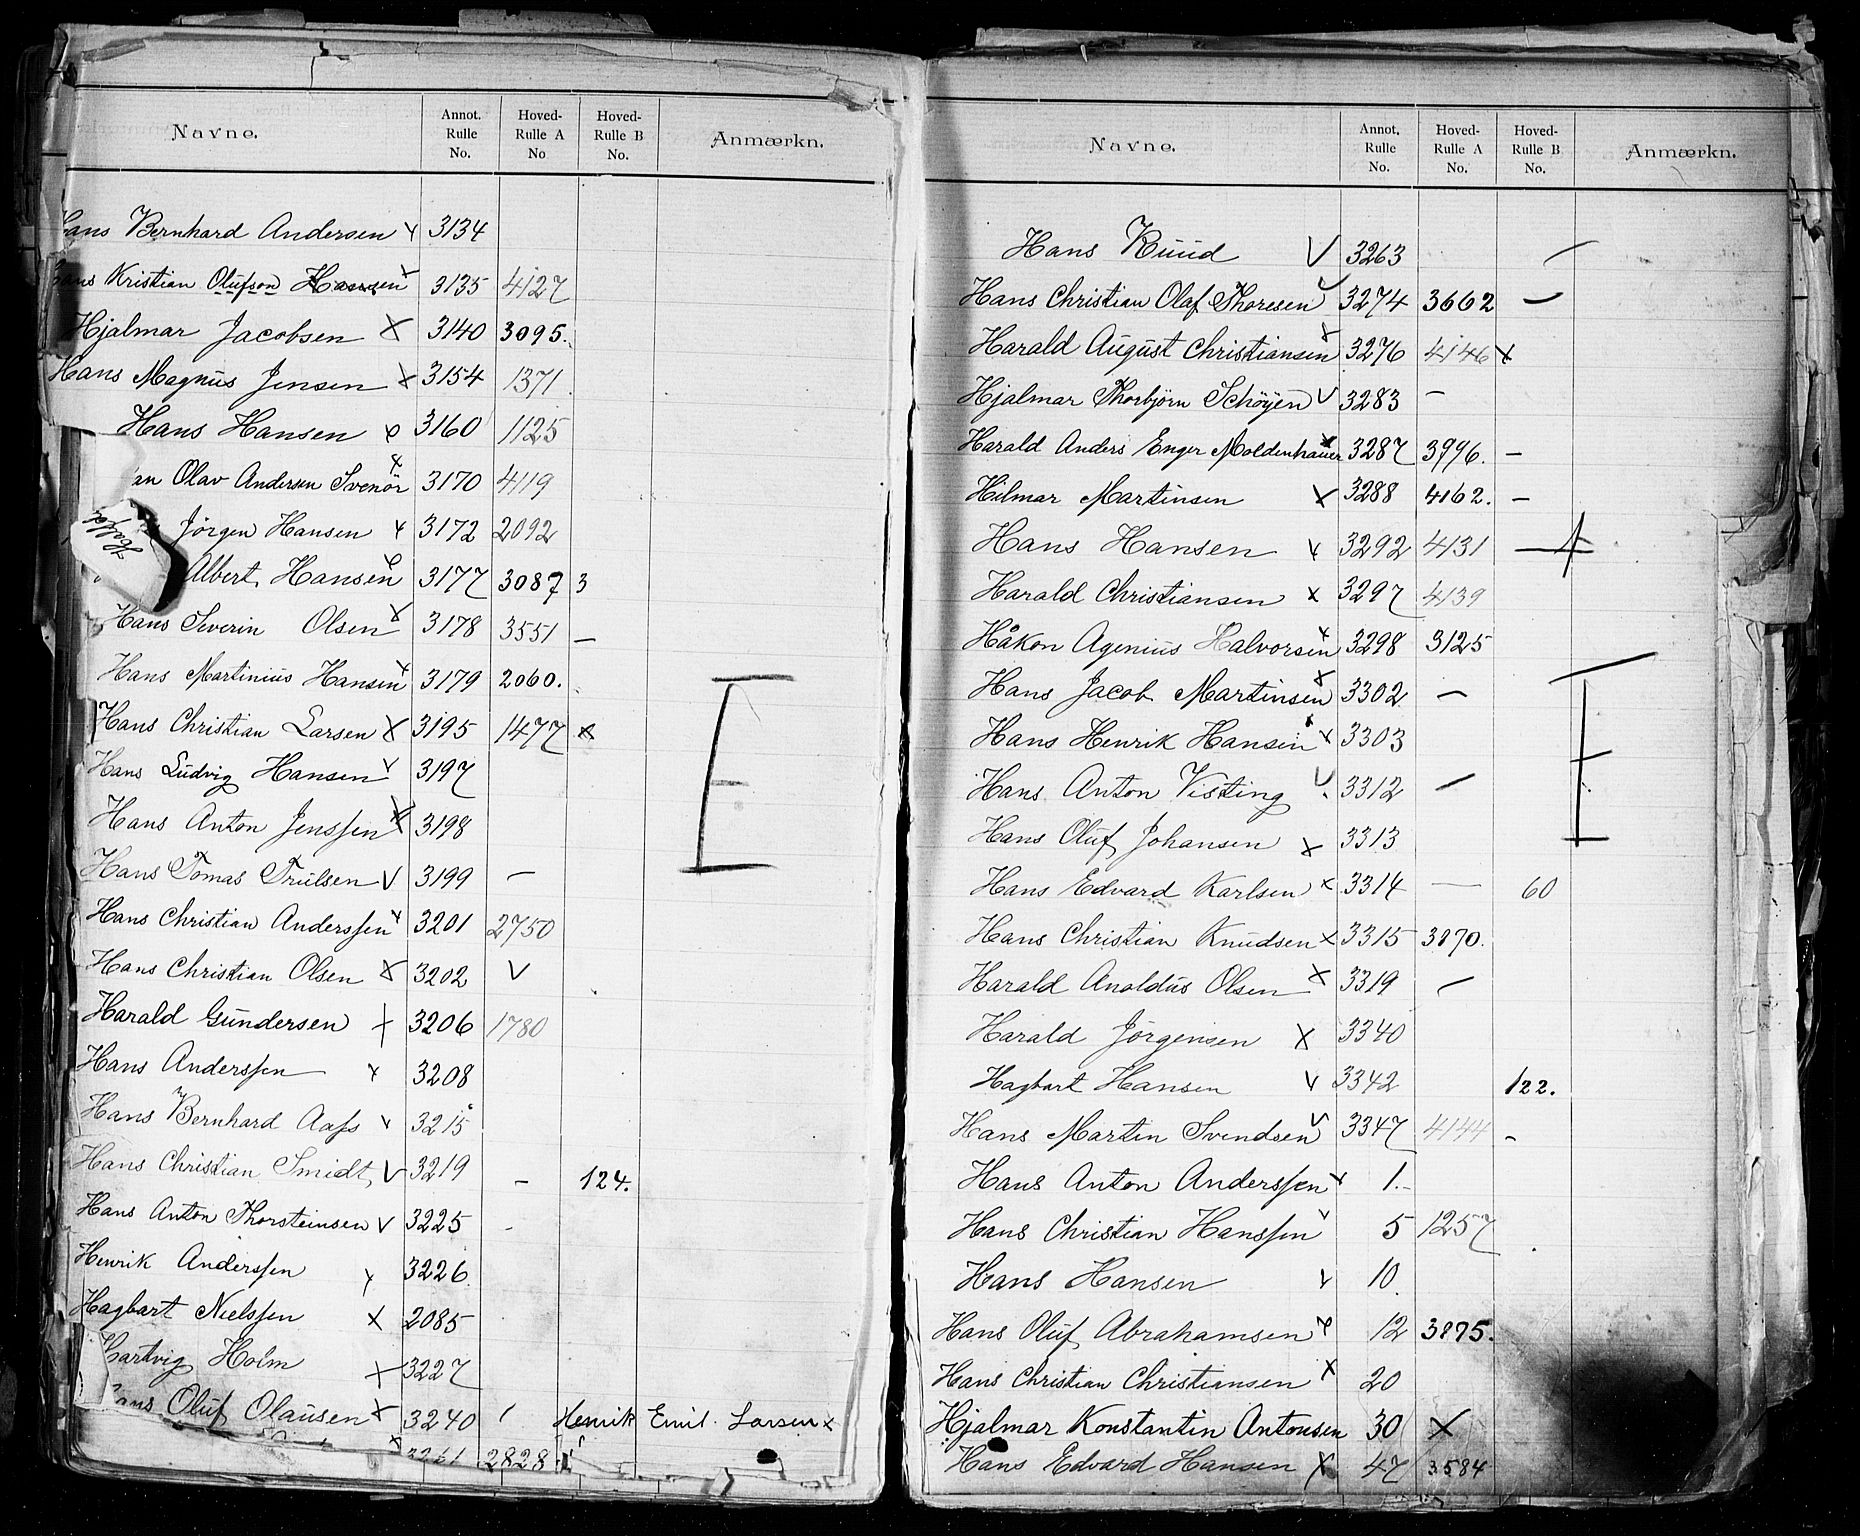 Navne. Annot. Rulle No. Hoved-Rulle A No Hoved-Rulle B No. Anmærkn.
Hans Bernhard Andersen x 3134
Hans Kristian Olufson Hansen x 3135 4127
Hjalmar Jacobsen x 3140 3095.
Hans Magnus Jensen x 3154 1371
Hans Hansen 3160 1125
an Olav Andersen Svenör x 3170 4119
Jörgen Hansen x 3172 2092
Albert Hansen 3177 3087 3
Hans Severin Olsen x 3178 3551 —
Hans Martinius Hansen x 3179 2060.
Hans Christian Larsen x 3195 1477 x
Hans Ludvig Hansen v 3197
Hans Anton Jenssen x 3198
Hans Tomas Trulsen v 3199 —
Hans Christian Anderssen x 3201 2750
Hans Christian Olsen x 3202 v
Harald Gundersen x 3206 1780
Hans Anderssen x 3208
Hans Bernhard Aass v 3215
Hans Christian Smidt v 3219 — 124.
Hans Anton Thorsteinsen v 3225 -
Henrik Anderssen x 3226
Hagbart Nielssen x 2085
Hartvig Holm x 3227
Hans Oluf Olausen x 3240 Henrik Emil Larsen x
3261 2828
E
Navne. Annot. Rulle No. Hoved-Rulle A No. Hoved-Rulle B No. Anmærkn.
Hans Ruud V 3263 —
Hans Christian Olaf Thoresen v 3274 3662 —
Harald August Christiansen x 3276 4146 x
Hjalmar Thorbjörn Schöyen v 3283 —
Harald Anders Enger Moldenhauer x 3287 3996. —
Hilmar Martinsen x 3288 4162. —
Hans Hansen x 3292 4131 —
Harald Christiansen x 3297 4139
Håkon Agenius Halvorsen x 3298 3125
Hans Jacob Martinsen x 3302 —
Hans Henrik Hansen x 3303
Hans Anton Visting v 3312 —
Hans Oluf Johansen x 3313
Hans Edvard Karlsen x 3314 — 60
Hans Christian Knudsen x 3315 3870.
Harald Anoldus Olsen x 3319 —
Harald Jörgensen x 3340
Hagbart Hansen v 3342 122.
Hans Martin Svendsen v 3347 4144 -
Hans Anton Anderssen x 1.-
Hans Christian Hanssen v 5 1257
Hans Hansen v 10
Hans Oluf Abrahamsen 12 3875.
Hans Christian Christiansen x 20
Hjalmar Konstantin Antonsen 30 x
Hans Edvard Hansen x 47 3584